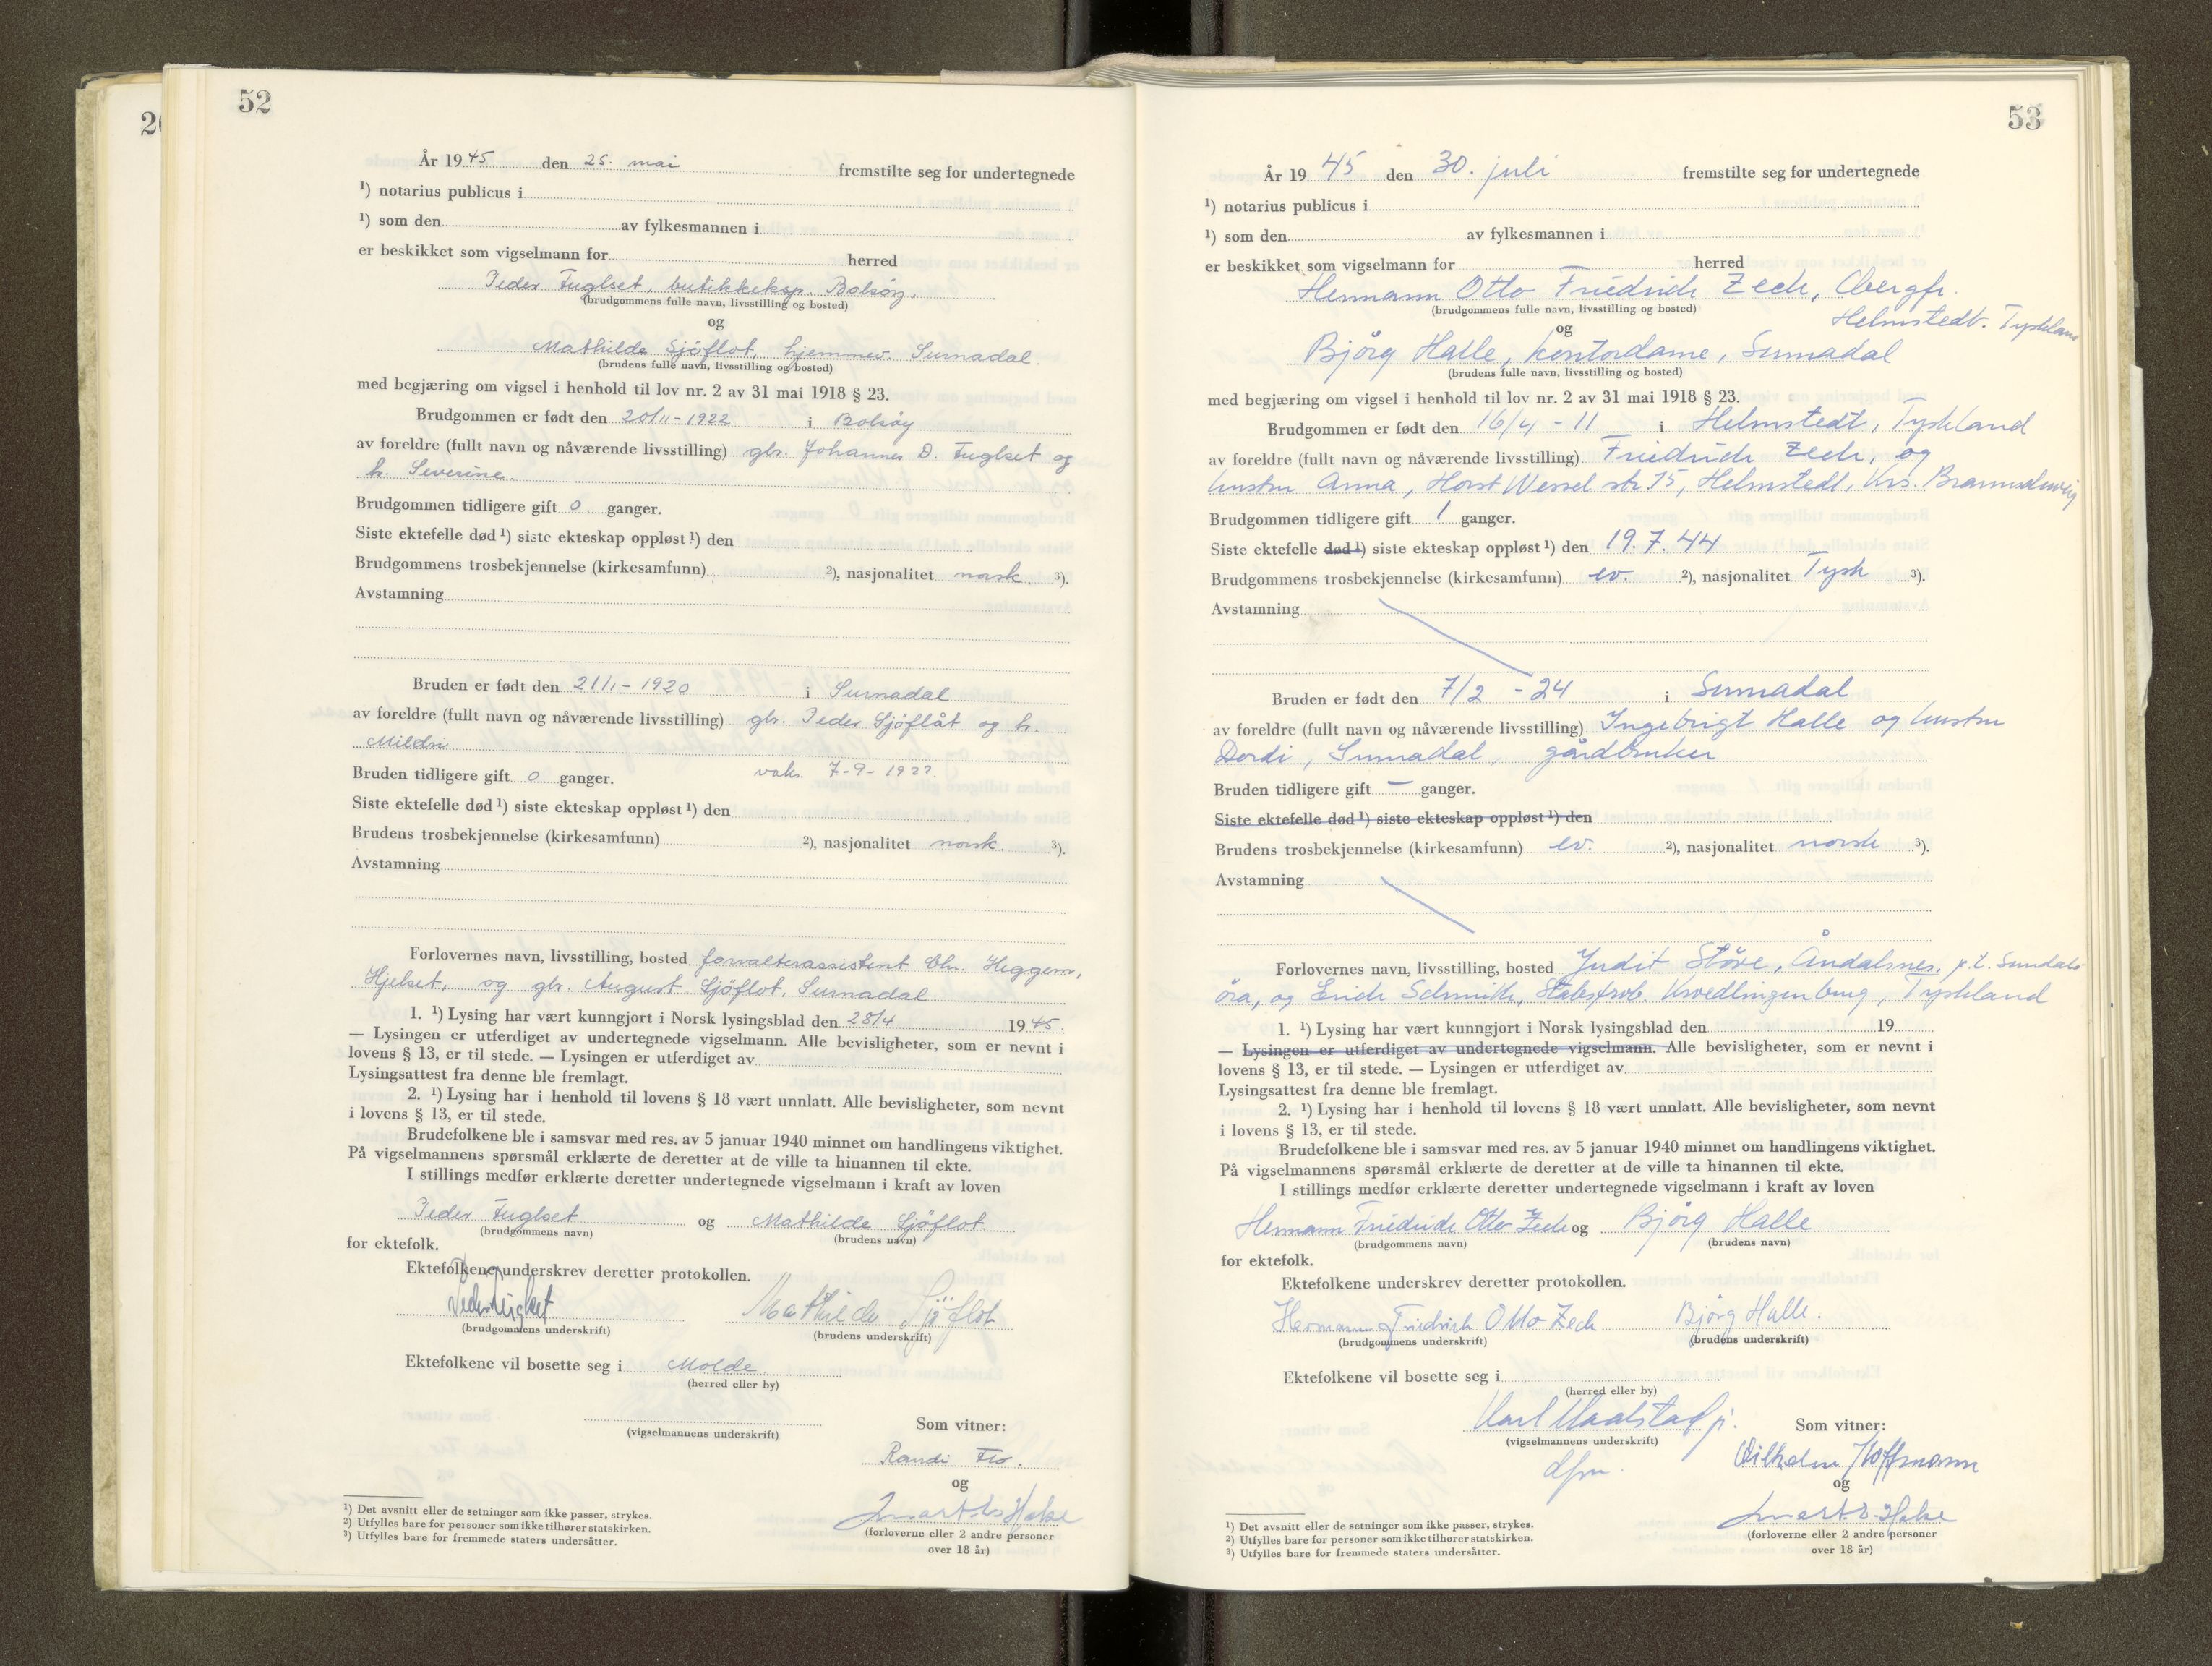 52
År 1945 den 25. mai fremstilte seg for undertegnede
¹) notarius publicus i
¹) som den av fylkesmannen i
er beskikket som vigselmann for herred
Peder Fuglset, butikkeksp. Bolsøy.
(brudgommens fulle navn, livsstilling og bosted)
og
Mathilde Sjöflot, hjemmev. Surnadal.
(brudens fulle navn, livsstilling og bosted)
med begjæring om vigsel i henhold til lov nr. 2 av 31 mai 1918 § 23.
Brudgommen er født den 20/11-1922 i Bolsøy
av foreldre (fullt navn og nåværende livsstilling) gbr. Johannes D. Fuglset og
h. Severine.
Brudgommen tidligere gift 0 ganger.
Siste ektefelle død ¹) siste ekteskap oppløst ¹) den
Brudgommens trosbekjennelse (kirkesamfunn) ²), nasjonalitet norsk. ³).
Avstamning
Bruden er født den 21/1-1920 i Surnadal
av foreldre (fullt navn og nåværende livsstilling) gbr. Peder Sjöflåt og h.
Mildri
Bruden tidligere gift 0 ganger. vaks. 7-9-
Siste ektefelle død ¹) siste ekteskap oppløst ¹) den
Brudens trosbekjennelse (kirkesamfunn) ²), nasjonalitet norsk. ³).
Avstamning
Forlovernes navn, livsstilling, bosted forvalterassistent Chr. Heggem,
Hjelset, og gbr. August Sjöflot, Surnadal
1. ¹) Lysing har vært kunngjort i Norsk lysingsblad den 28/4 1945.
— Lysingen er utferdiget av undertegnede vigselmann. Alle bevisligheter, som er nevnt i
lovens § 13, er til stede. — Lysingen er utferdiget av
Lysingsattest fra denne ble fremlagt.
2. ¹) Lysing har i henhold til lovens § 18 vært unnlatt. Alle bevisligheter, som nevnt
i lovens § 13, er til stede.
Brudefolkene ble i samsvar med res. av 5 januar 1940 minnet om handlingens viktighet.
På vigselmannens spørsmål erklærte de deretter at de ville ta hinannen til ekte.
I stillings medfør erklærte deretter undertegnede vigselmann i kraft av loven
Peder Fuglset og Mathilde Sjöflot.
(brudgommens navn) (brudens navn)
for ektefolk.
Ektefolkene underskrev deretter protokollen.
Peder Fuglset Mathilde Sjöflot
(brudgommens underskrift) (brudens underskrift)
Ektefolkene vil bosette seg i Molde.
(herred eller by)
Som vitner:
(vigselmannens underskrift)
Randi Flo.
og
(forloverne eller 2 andre personer
over 18 år)
¹) Det avsnitt eller de setninger som ikke passer, strykes.
²) Utfylles bare for personer som ikke tilhører statskirken.
³) Utfylles bare for fremmede staters undersåtter.
53
År 1945 den 30. juli fremstilte seg for undertegnede
¹) notarius publicus i
¹) som den av fylkesmannen i
er beskikket som vigselmann for herred
Hermann Otto Friedrich Zech, Obergfr.
(brudgommens fulle navn, livsstilling og bosted)
Helmstedt. Tyskland
og
Bjørg Halle, kontordame, Surnadal
(brudens fulle navn, livsstilling og bosted)
med begjæring om vigsel i henhold til lov nr. 2 av 31 mai 1918 § 23.
Brudgommen er født den 16/4 - 11 i Helmstedt, Tyskland
av foreldre (fullt navn og nåværende livsstilling) Friedrich Zech, og
hustru Anna, Horst Wessel str. 15, Helmstedt, Krs. Braunschweig
Brudgommen tidligere gift 1 ganger.
Siste ektefelle død ¹) siste ekteskap oppløst ¹) den 19.7.44
Brudgommens trosbekjennelse (kirkesamfunn) ev. ²), nasjonalitet Tysk ³).
Avstamning
Bruden er født den 7/2 - 24 i Surnadal
av foreldre (fullt navn og nåværende livsstilling) Ingebrigt Halle og hustru
Dordi, Surnadal, gårdbruker
Bruden tidligere gift — ganger.
Siste ektefelle død ¹) siste ekteskap oppløst ¹) den
Brudens trosbekjennelse (kirkesamfunn) ev. ²), nasjonalitet norsk ³).
Avstamning
Forlovernes navn, livsstilling, bosted Judit Støre, Åndalsnes. p.t. Sundals
øra, og Erich Schmith, Kwedlingenburg, Tyskland
1. ¹) Lysing har vært kunngjort i Norsk lysingsblad den 19
— Lysingen er utferdiget av undertegnede vigselmann. Alle bevisligheter, som er nevnt i
lovens § 13, er til stede. — Lysingen er utferdiget av
Lysingsattest fra denne ble fremlagt.
2. ¹) Lysing har i henhold til lovens § 18 vært unnlatt. Alle bevisligheter, som nevnt
i lovens § 13, er til stede.
Brudefolkene ble i samsvar med res. av 5 januar 1940 minnet om handlingens viktighet.
På vigselmannens spørsmål erklærte de deretter at de ville ta hinannen til ekte.
I stillings medfør erklærte deretter undertegnede vigselmann i kraft av loven
Hermann Friedrich Otto Zech og Bjørg Halle
(brudgommens navn) (brudens navn)
for ektefolk.
Ektefolkene underskrev deretter protokollen.
Hermann Friedrich Otto Zech Bjørg Halle.
(brudgommens underskrift) (brudens underskrift)
Ektefolkene vil bosette seg i
(herred eller by)
Karl
Som vitner:
(vigselmannens underskrift)
Wilhelm Hoffmann
og
(forloverne eller 2 andre personer
over 18 år)
¹) Det avsnitt eller de setninger som ikke passer, strykes.
²) Utfylles bare for personer som ikke tilhører statskirken.
³) Utfylles bare for fremmede staters undersåtter.